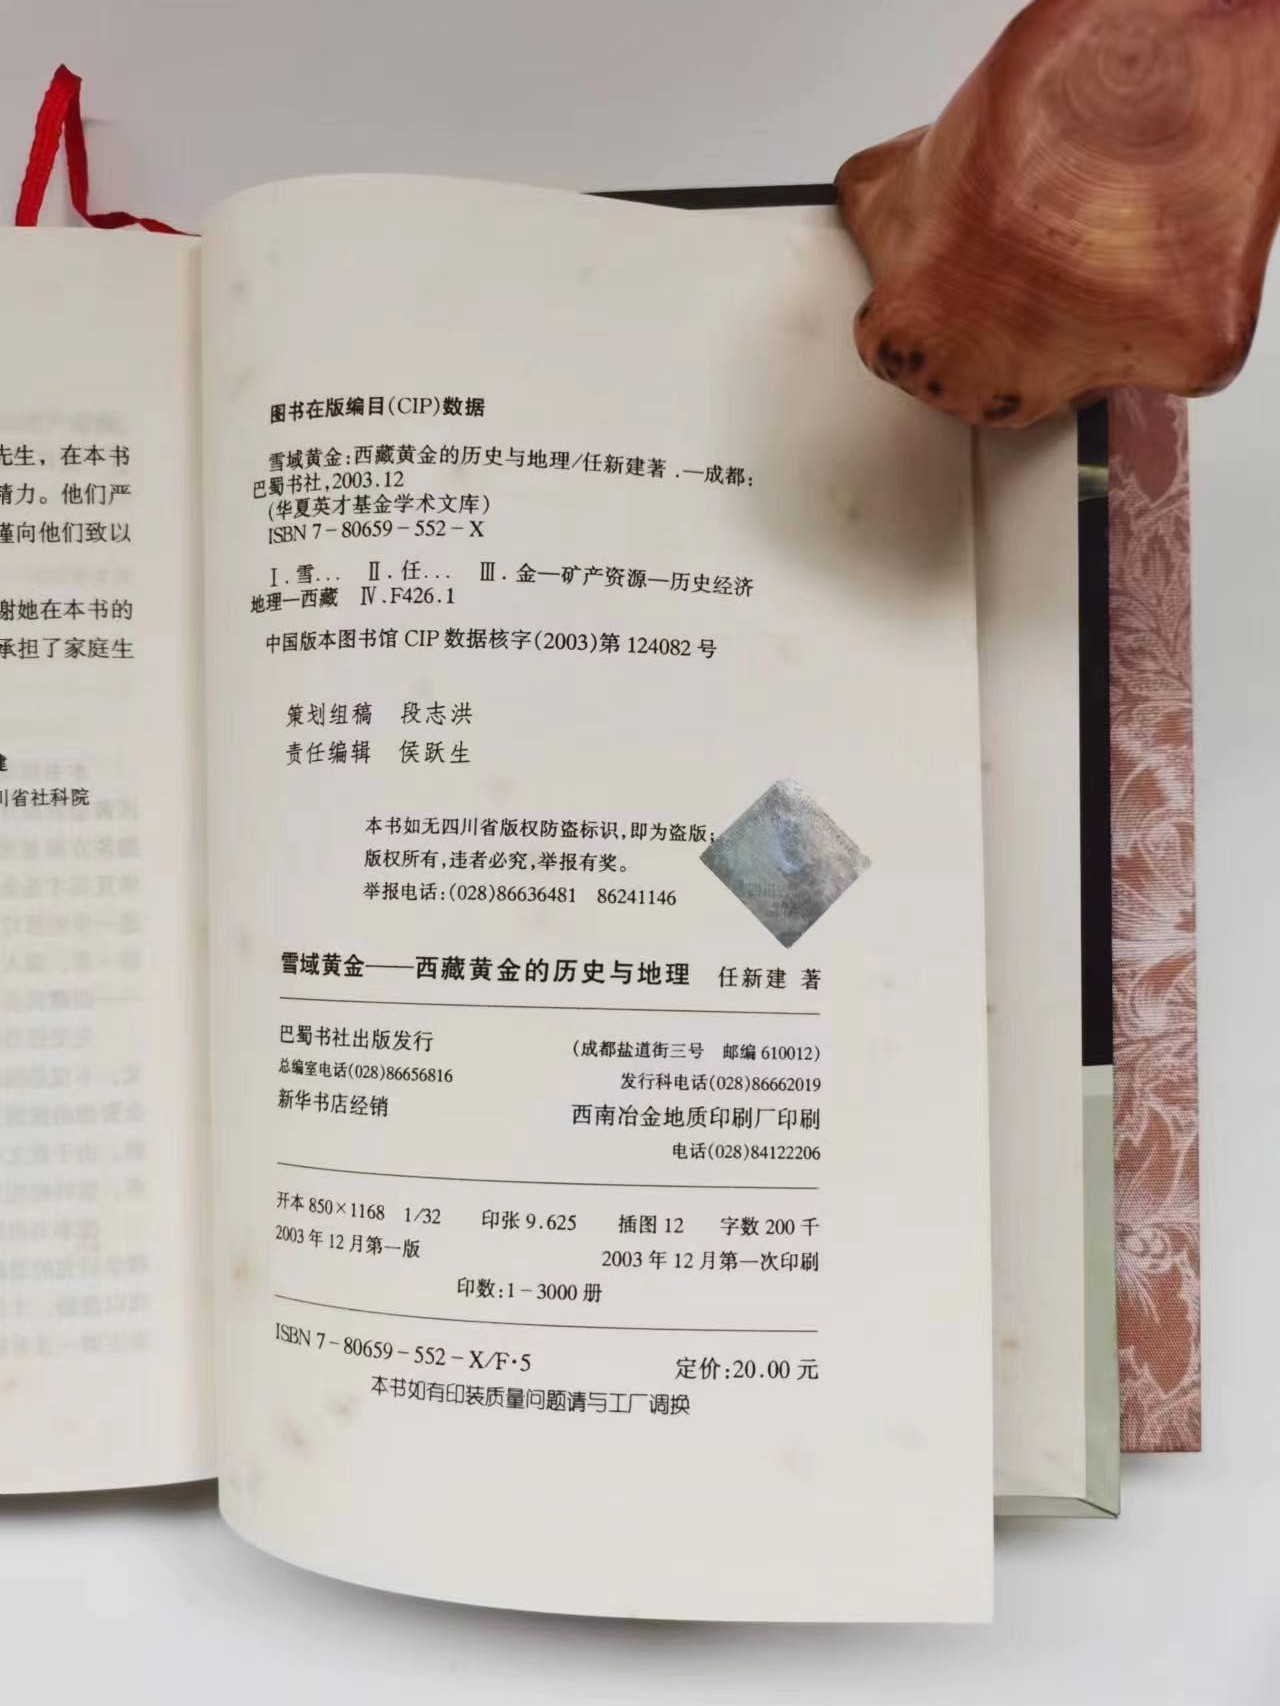 先生，在本书
精力。他们严
谨向他们致以
谢她在本书的
承担了家庭生
建
川省社科院
图书在版编目(CIP)数据
雪域黄金:西藏黄金的历史与地理/任新建著.—成都:
巴蜀书社,2003.12
(华夏英才基金学术文库)
ISBN 7-80659-552-X
Ⅰ.雪… Ⅱ.任… Ⅲ.金—矿产资源—历史经济
地理—西藏 Ⅳ.F426.1
中国版本图书馆 CIP 数据核字(2003)第 124082 号
策划组稿 段志洪
责任编辑 侯跃生
本书如无四川省版权防盗标识,即为盗版;
版权所有,违者必究,举报有奖。
举报电话:(028)86636481 86241146
雪域黄金——西藏黄金的历史与地理 任新建 著
巴蜀书社出版发行 (成都盐道街三号 邮编 610012)
总编室电话(028)86656816 发行科电话(028)86662019
新华书店经销 西南冶金地质印刷厂印刷
电话(028)84122206
开本 850×1168 1/32 印张 9.625 插图 12 字数 200 千
2003 年 12 月第一版 2003 年 12 月第一次印刷
印数:1-3000 册
ISBN 7-80659-552-X/F·5 定价:20.00 元
本书如有印装质量问题请与工厂调换